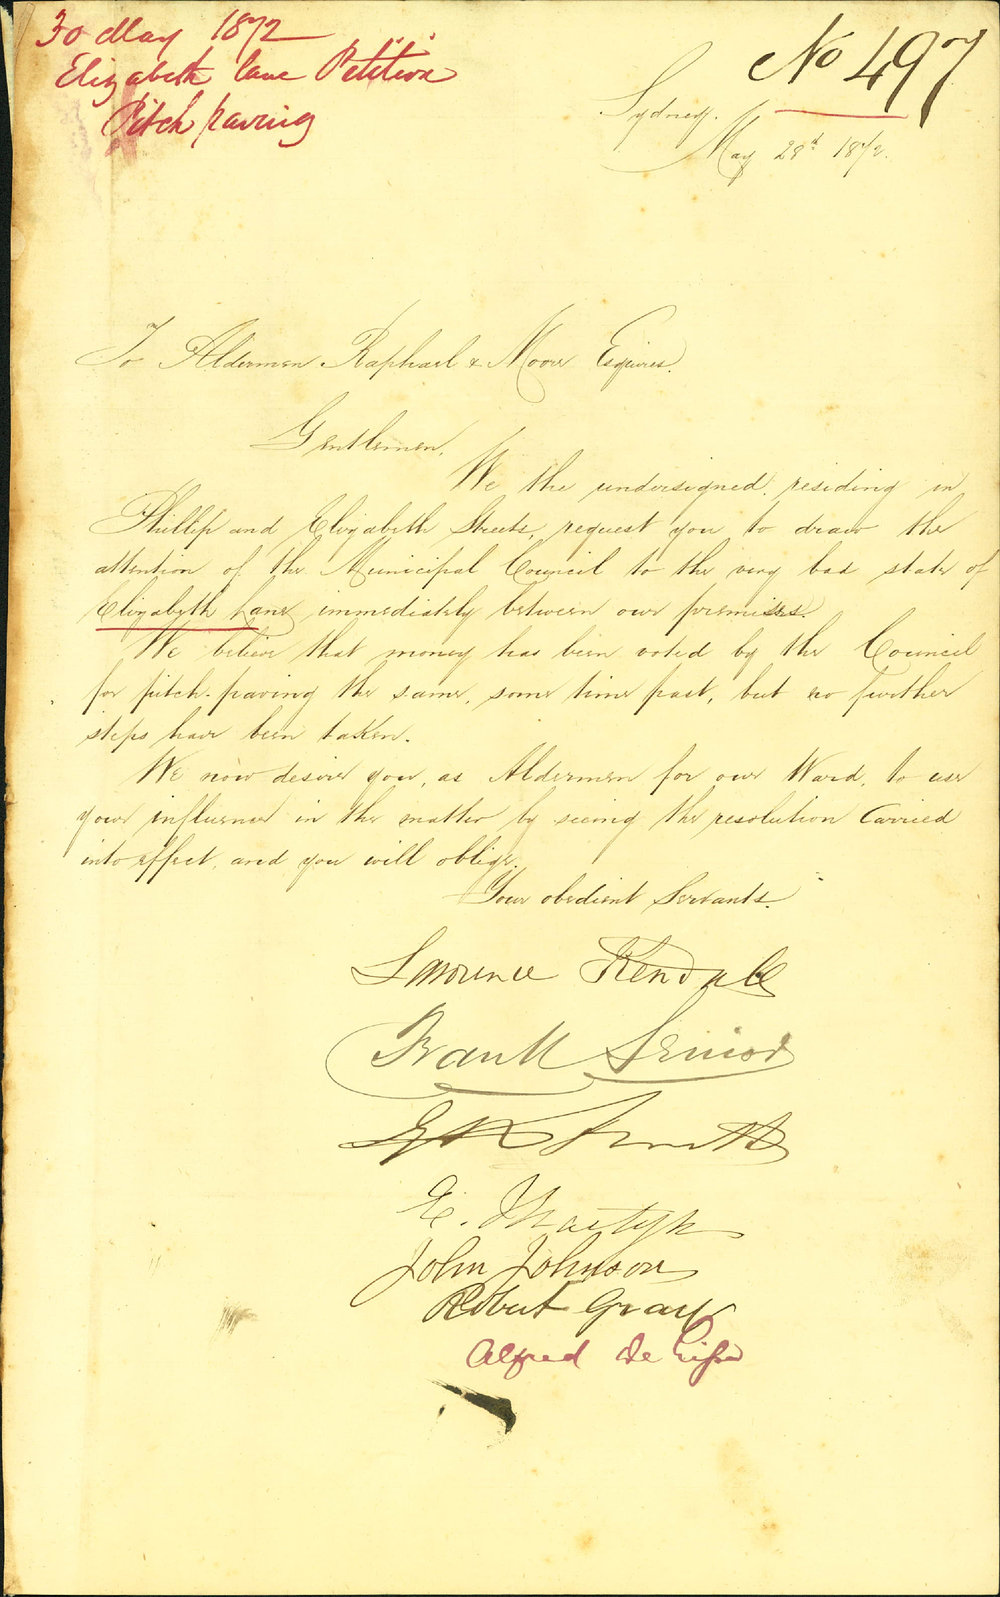 30 May 1872
Elizabeth lane Petition
Pitch paving
No 497
Sydney.
May 28th 1872.
To Aldermen Raphael & Moore Esquires.
Gentlemen,
We the undersigned, residing in
Phillip and Elizabeth Streets, request you to draw the
attention of the Municipal Council to the very bad state of
Elizabeth Lane, immediately between our premises.
We believe that money has been voted by the Council
for pitch-paving the same, some time past, but no further
steps have been taken.
We now desire you, as Aldermen for our Ward, to use
your influence in the matter by seeing the resolution Carried
into effect, and you will oblige.
Your obedient Servants.
Lawrence Kendall
Frank Senior
Smith
E.
John Johnson
Robert Gray
Alfred De Lissa